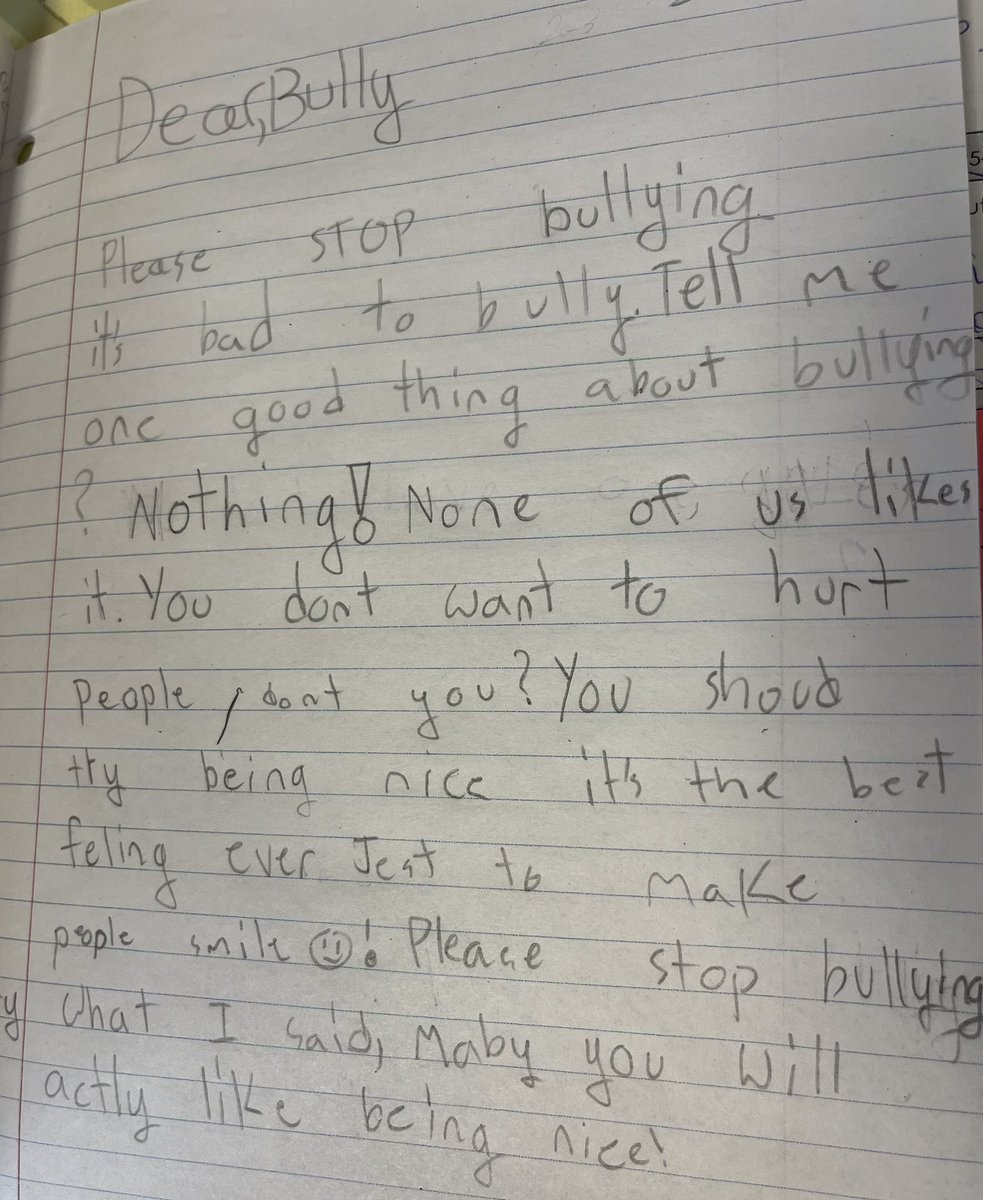 Dear,Bully
Please STOP bullying
it's bad to bully. Tell me
one good thing about bullying
? Nothing! None of us likes
it. You dont want to hurt
people, dont you? You shoud
try being nice it's the best
feling ever Jest to make
people smile ☺! Please stop bullying
y what I said, Maby you will
actly like being nice!